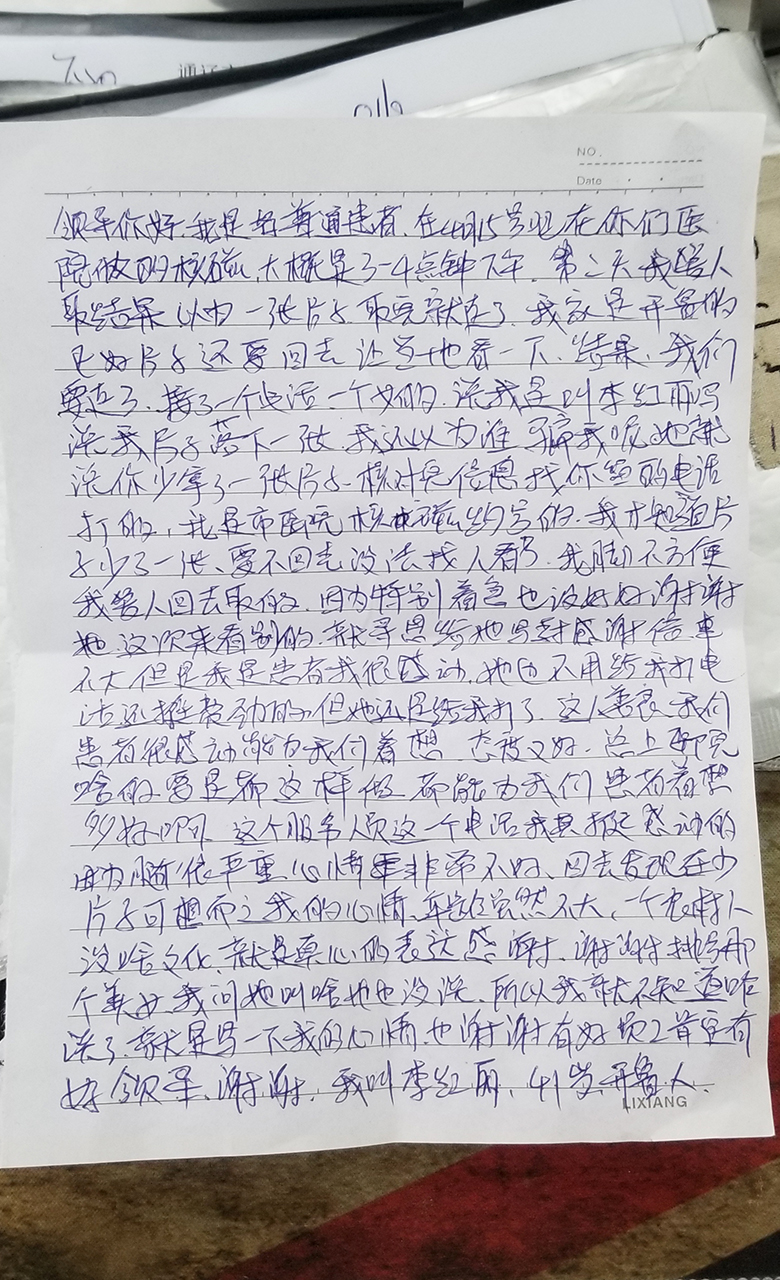 通辽市
NO.
Date
领导你好.我是名普通患者.在4月15号现在你们医
院做的核磁.大概是3-4点钟下午.第二天我家人
取结果以为一张片子.取完就走了.我家是开鲁的
片子还要回去让当地看一下.结果.我们
要走了.接了一个电话一个女的.说我是叫李红丽吗
说我片子落下一张.我还以为谁骗我呢她就
说你少拿了一张片子.核对完信息找你留的电话
打的,我是市医院核磁出的.我才知道片
子少了一张、要不回去没法找人看.我脚不方便
我家人回去取的.因为特别着急也没好好谢谢
她.这次来看别的.就寻思给她写封感谢信.事
不大但是我是患者我很感动.她也不用给我打电
话还挺费劲的.但她还是给我打了.这人善良.我们
患者很感动能为我们着想.态度又好.总上医院
啥的要是都这样做.都能为我们患者着想
多好啊.这个服务人员这一个电话我真挺感动的
因为病很严重.心情非常不好、回去发现还少
片子可想而之我的心情.事虽然不大、一个农村人
没啥文化.就是真心的表达感谢.谢谢排号那
个美女.我问她叫啥她也没说.所以我就不知道咋
说了.就是写一下我的心情.也谢谢有好员工肯定有
好领导.谢谢.我叫李红丽、41岁.开鲁人.
LIXIANG